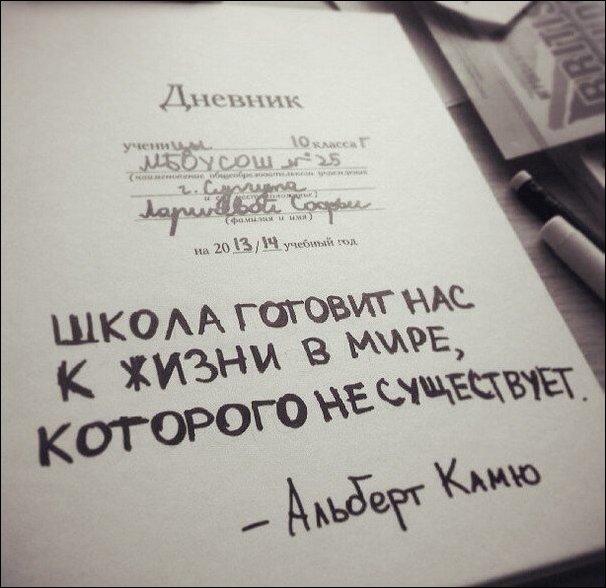 Дневник
ученицы 10 класса Г
МБОУСОШ № 25
(наименование общеобразовательного учреждения
г. Сургута
Софьи
(фамилия и имя)
на 2013/14 учебный год
ШКОЛА ГОТОВИТ НАС
К ЖИЗНИ В МИРЕ,
КОТОРОГО НЕ СУЩЕСТВУЕТ.
– Альберт Камю
BRITIS